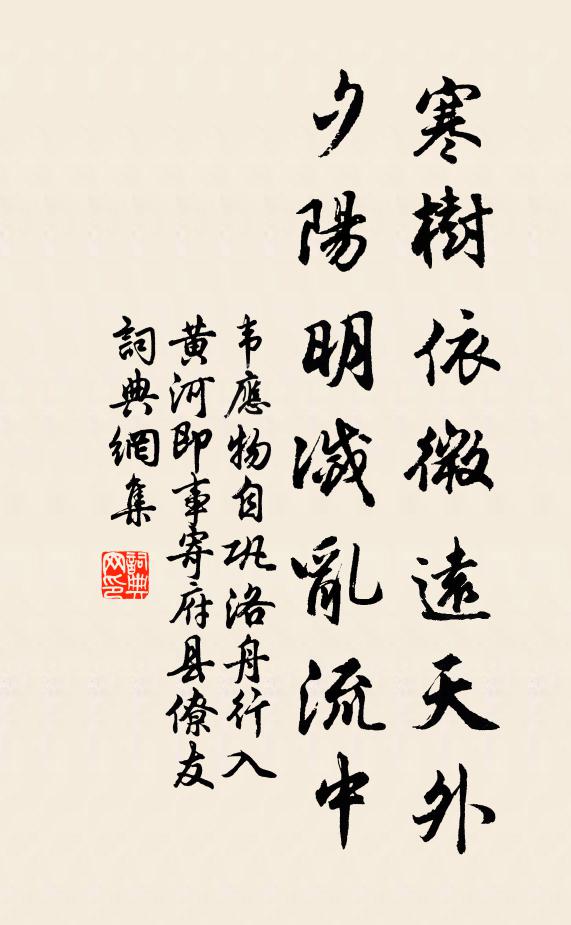 寒樹依微遠天外
夕陽明滅亂流中
韦應物自巩洛舟行入
黄河即事寄府县僚友
詞典網集
詞典网印